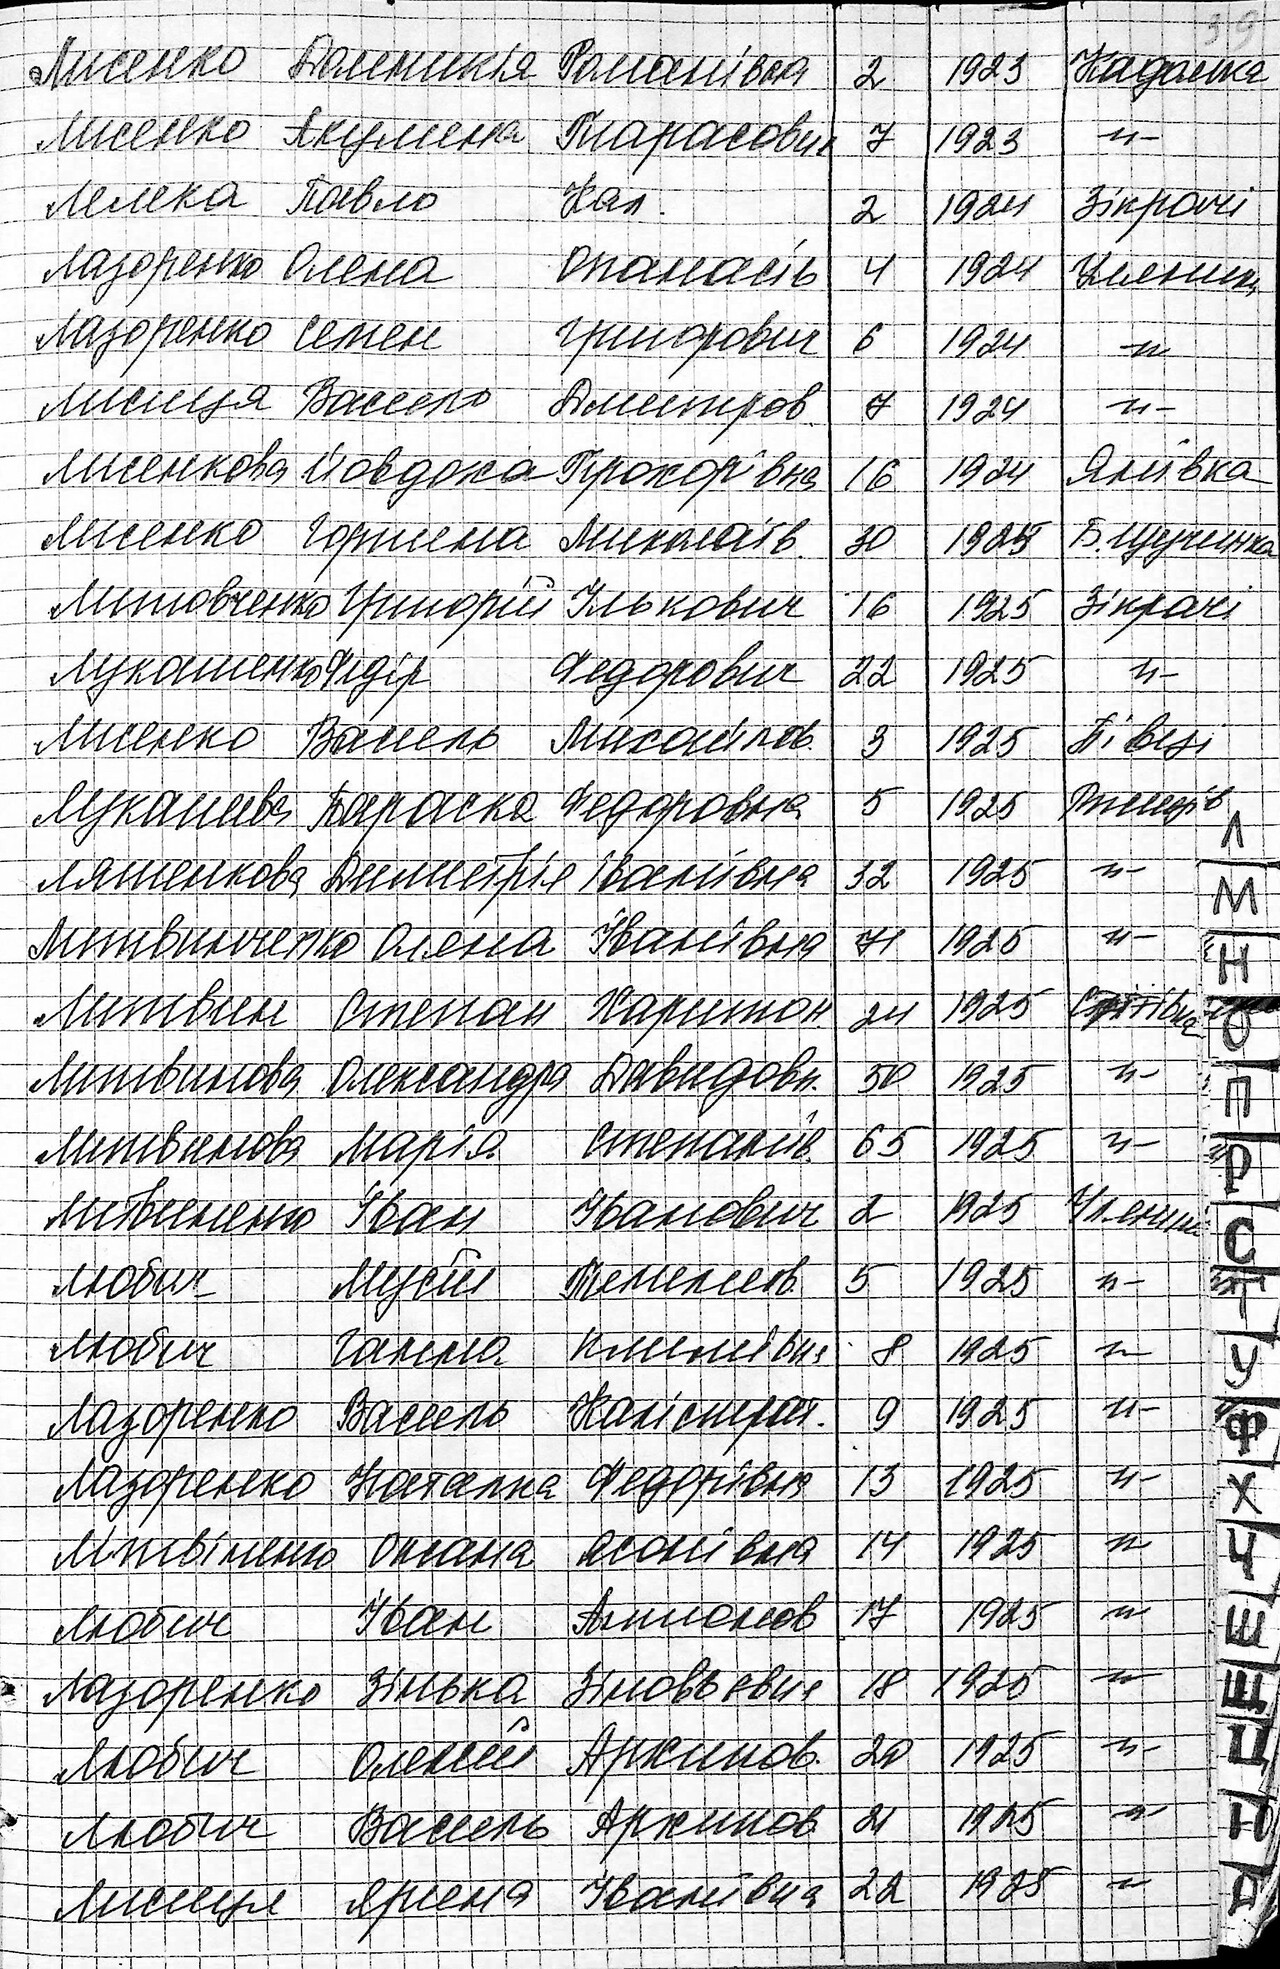 39
Лисенко Доменикія Романівна 2 1923 Кадаївка
Лисенко Якулина Тарасовна 7 1923 -"-
Лелека Павло Кал. 2 1924 Зікрачі
Лазоренко Олена Опанасів 4 1924 Уляники
Лазоренко Семен Григорович 6 1924 -"-
Лисиця Василь Дмитров. 7 1924 -"-
Лисенкова Йовдоха Прохорівна 16 1924 Янівка
Лисенко Горпина Миколаїв. 30 1925 Б.
Литовченко Григорій Ількович 16 1925 Зікрачі
Лукашенко Федір Федорович 22 1925 -"-
Лисенко Василь Михайлов. 3 1925 Півці
Лукашева Параска Федоровна 5 1925 Ржищів
Ляшенкова Димитрія Іванівна 32 1925 -"-
Литвинченко Олена Іванівна 71 1925 -"-
Литвин Степан Харитон 24 1925
Литвинова Олександра Давидовн. 50 1925 -"-
Литвинова Марія Степанів. 65 1925 -"-
Литвиненко Іван Іванович 2 1925 Уляники
Любич Мусій 5 1925 -"-
Любич Ганна Климівна 8 1925 -"-
Лазоренко Василь Калістрат. 9 1925 -"-
Лазоренко Наталка Федорівна 13 1925 -"-
Литвіненко Оксана Ясонівна 14 1925 -"-
Любич Іван Антонов 17 1925 -"-
Лазоренко Зінька Зіновьевна 18 1925 -"-
Любич Олексій Архипов. 20 1925 -"-
Любич Василь Архипов 21 1925 -"-
Лисиця Ярина Іванівна 22 1925 -"-
Л
М
Н
О
П
Р
С
Т
У
Ф
Х
Ч
Ш